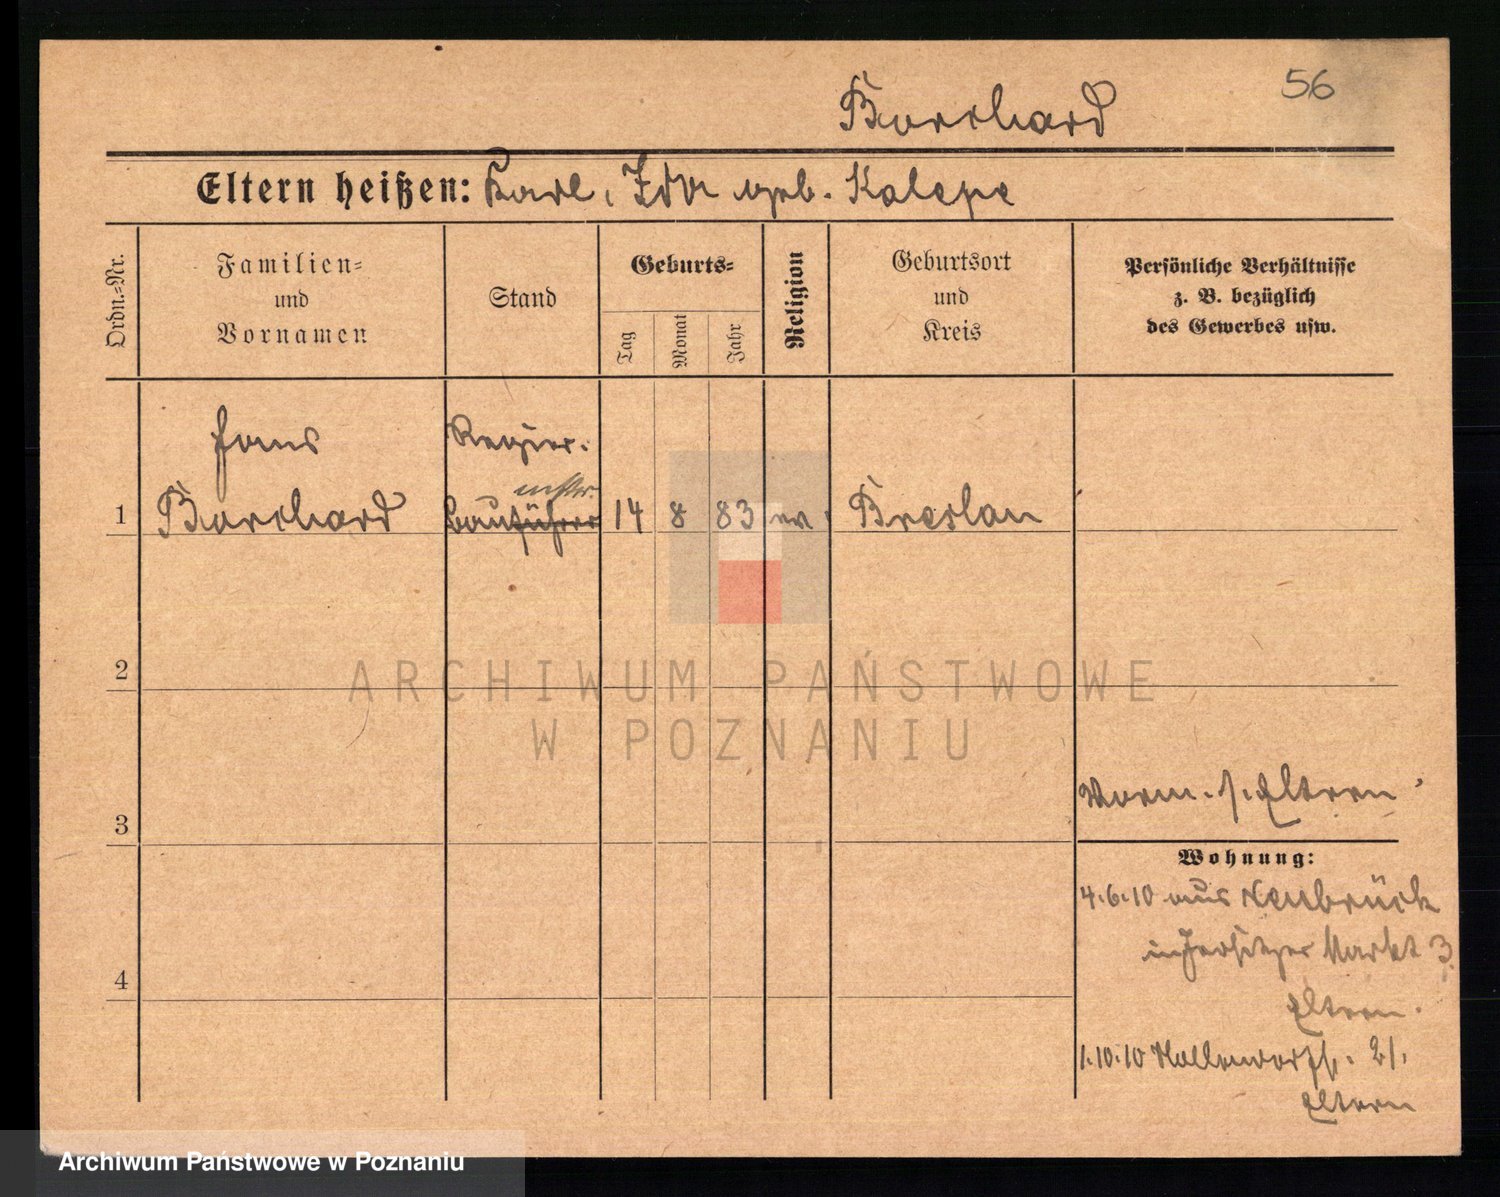 56
Borchard
Eltern heißen: Karl, Ida geb. Kalepe
Ordn.=Nr.
Familien=
und
Vornamen
Stand
Geburts=
Tag
Monat
Jahr
Religion
Geburtsort
und
Kreis
Persönliche Verhältnisse
z. B. bezüglich
des Gewerbes usw.
Hans
Regier.
mstr.
1 Borchard Bauführer 14 8 83 ev. Breslau
2
3
4
Vorm. s. Eltern
Wohnung:
4.6.10 aus Neubrück
in Jersitzer Markt 3.
Eltern.
1.10.10 21.
Eltern
ARCHIWUM PAŃSTWOWE
W POZNANIU
Archiwum Państwowe w Poznaniu